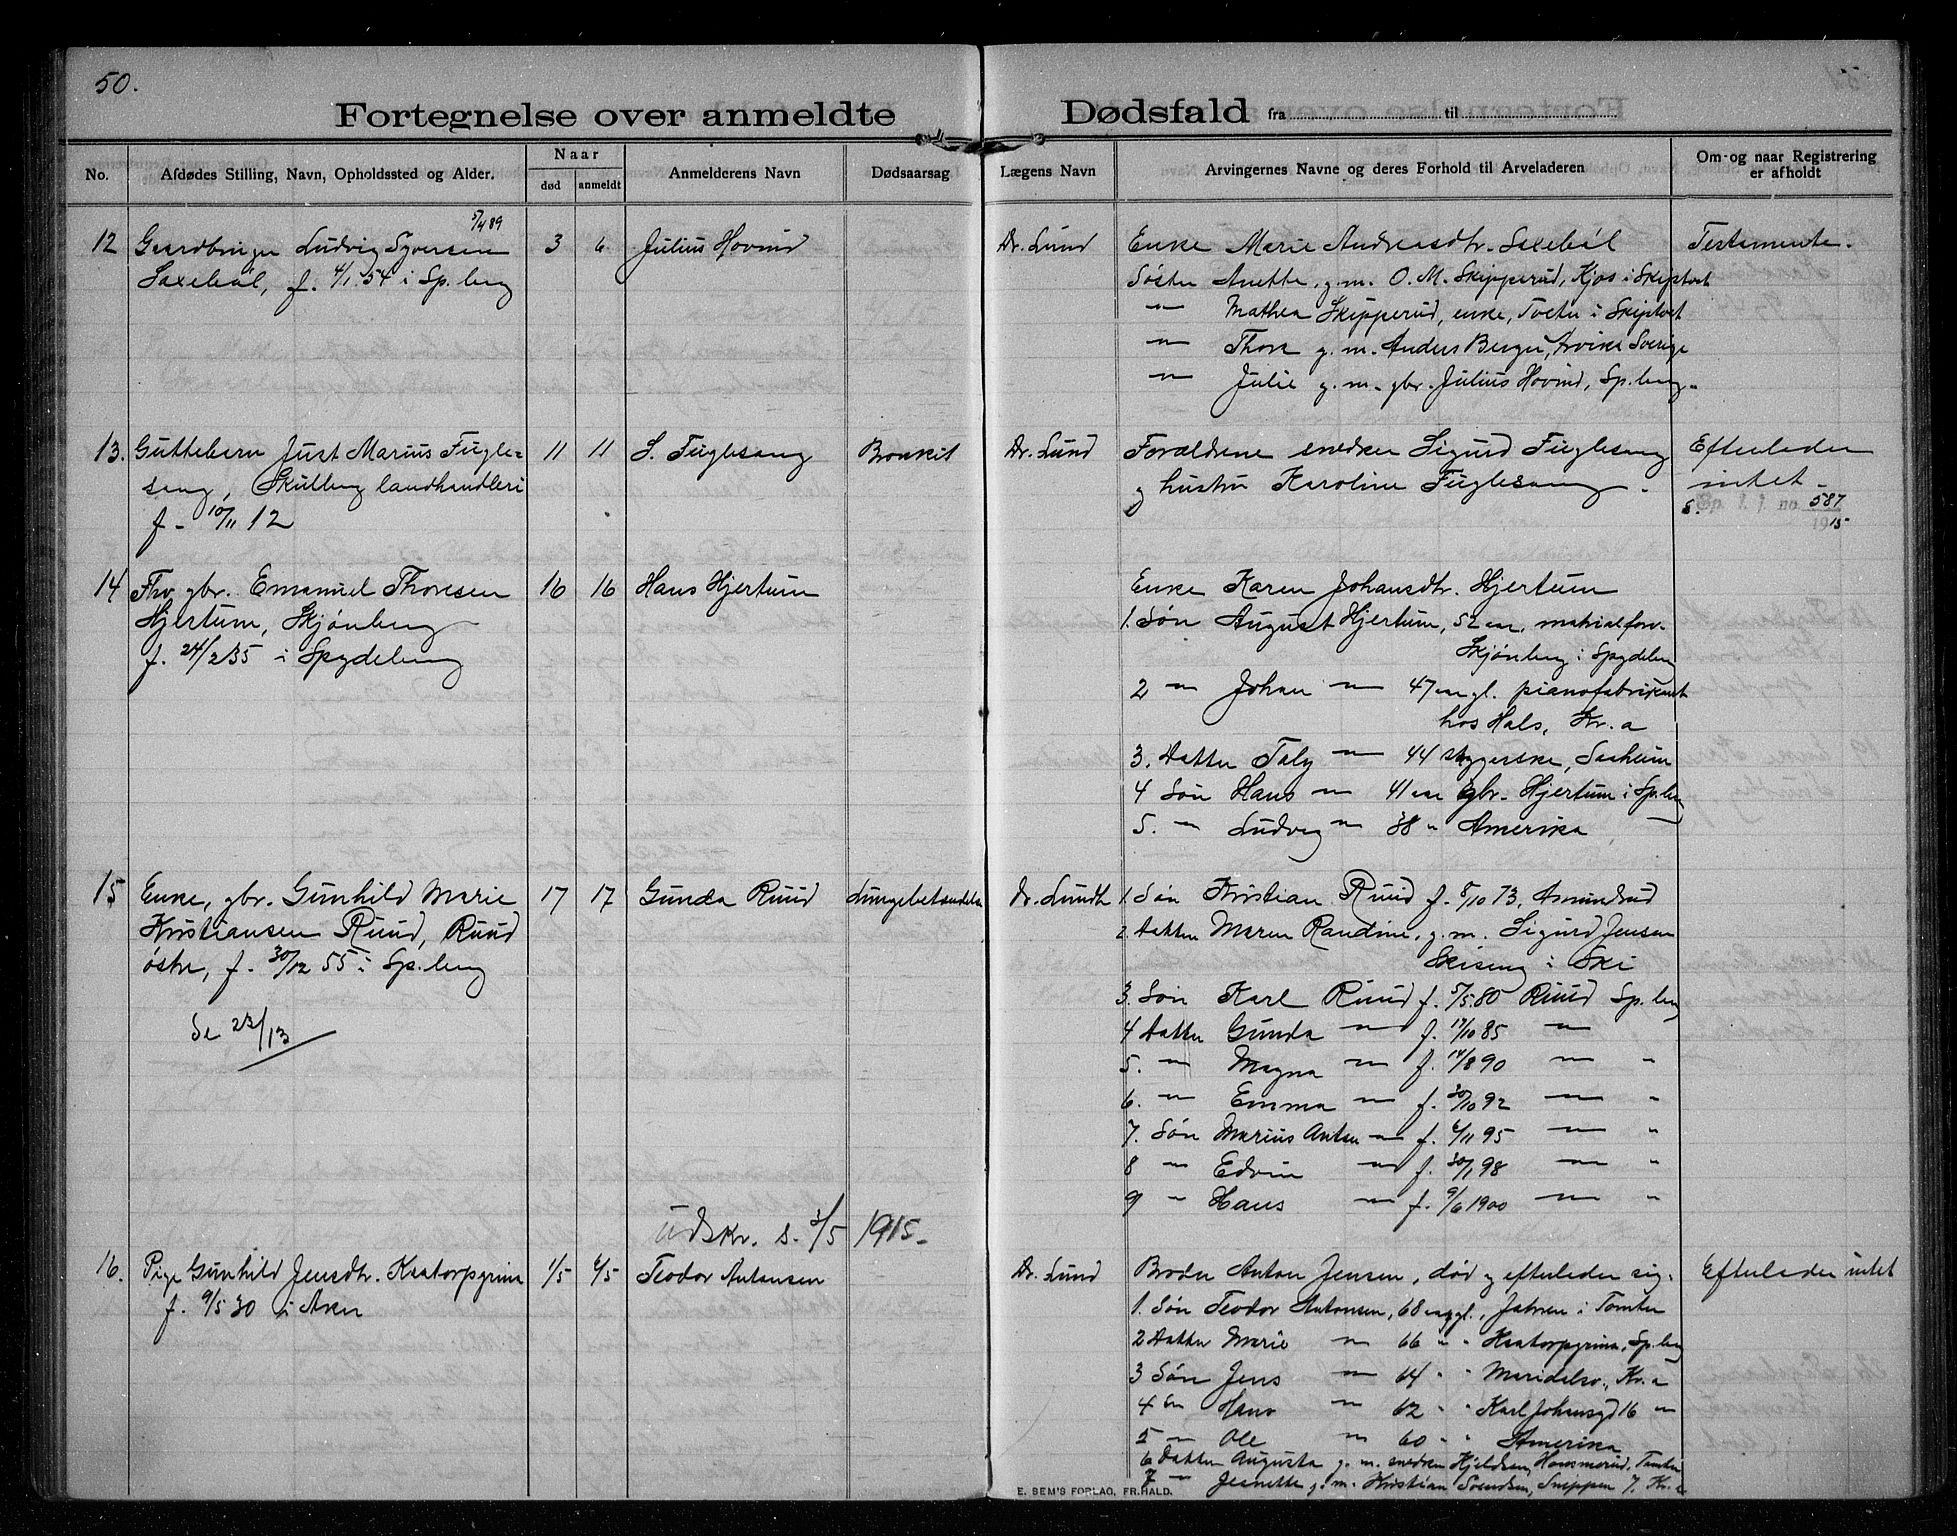 50.
Fortegnelse over anmeldte Dødsfald fra til
No. Afdødes Stilling, Navn, Opholdssted og Alder. Naar død anmeldt Anmelderens Navn Dødsaarsag Lægens Navn Arvingernes Navne og deres Forhold til Arveladeren Om- og naar Registrering er afholdt
5/4 89
12 Gaardbruger Ludvig Syversen 3 6 Julius Hovind Dr. Lund Enke Marie Andreasdtr. Saxebøl Testamente.
Saxebøl, f. 4/1 54 i Sp.berg
Søster Anette, g.m. O. M. Skipperud, Kjos i Skiptvet
" Mathea Skipperud, enke, Tveter i Skiptvet
" Thora g.m. Anders Berger, Arvika Sverige
" Julie g.m. gbr. Julius Hovind, Sp.berg.
13. Guttebarn Just Marius Fugle= 11 11 S. Fuglesang Bronkit Dr. Lund Forældrene snedker Sigurd Fuglesang Efterlader
sang, Skulberg landhandleri og hustru Karoline Fuglesang. intet.
f. 10/11 12
S. Sp. l. j. no 587
1915
14 Fhv. gbr. Emanuel Thoresen 16 16 Hans Hjertum Enke Karen Johansdtr. Hjertum
Hjertum, Skjønberg 1. Søn August Hjertum, 52 aar, matrialforv.
f. 24/2 35 i Spydeberg Skjønberg i Spydeberg
2 " Johan " 47 aar gl. pianofabrikant
hos Hals, Kr.a
3. Datter Taly " 44 sygerske, Saaheim
4 Søn Hans " 41 aar gbr. Hjertum i Sp.berg
5. " Ludvig " 38 " Amerika
15 Enke, gbr. Gunhild Marie 17 17 Gunda Ruud Lungebetændelse Dr. Lundh 1. Søn Kristian Ruud f. 8/10 73, Amundrud
Kristiansen Ruud, Ruud 2. Datter Maren Randine, g.m. Sigurd Jensen
østre, f. 30/12 55 i Sp.berg Skiseng i Ski
3. Søn Karl Ruud f. 5/5 80 Ruud Sp.berg
Se 23/13
4 Datter Gunda " f. 17/10 85 " "
5. " Magna " f. 14/8 90 " "
6. " Emma " f. 30/10 92 " "
7. Søn Marius Anton " f. 6/11 95 " "
8 " Edvin " f. 30/1 98 " "
9 " Hans " f. 9/6 1900 " "
Udskr. s. 3/5 1915.
16. Pige Gunhild Jensdtr. Kaatorpgrina 1/5 4/5 Teodor Antonsen Dr. Lund Broder Anton Jensen, død og efterlader sig. Efterlader intet
f. 9/5 30 i Aker 1. Søn Teodor Antonsen, 68 aar gl., Jahren i Tomter
2 Datter Marie " 66 " " Kaatorpgrina, Sp.berg
3 Søn Jens " 64 " " Maridalsv., Kr.a
4 Søn Hans " 62 " " Karl Johansgd 16 "
5 " Ole " 60 " " Amerika
6 Datter Augusta g.m. snedker Kjeldsen, Hammerud, Tomter
7 " Jeanette g.m. Kristian Svendsen, Snippen 7, Kr.a
E. SEM'S FORLAG, FR.HALD.